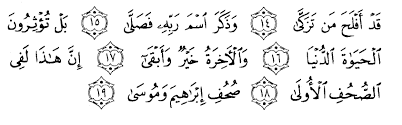 قَدْ أَفْلَحَ مَن تَزَكَّىٰ ١٤ وَذَكَرَ ٱسْمَ رَبِّهِۦ فَصَلَّىٰ ١٥ بَلْ تُؤْثِرُونَ
ٱلْحَيَوٰةَ ٱلدُّنْيَا ١٦ وَٱلْأَخِرَةُ خَيْرٌ وَأَبْقَىٰٓ ١٧ إِنَّ هَـٰذَا لَفِى
ٱلصُّحُفِ ٱلْأُولَىٰ ١٨ صُحُفِ إِبْرَٰهِيمَ وَمُوسَىٰ ١٩